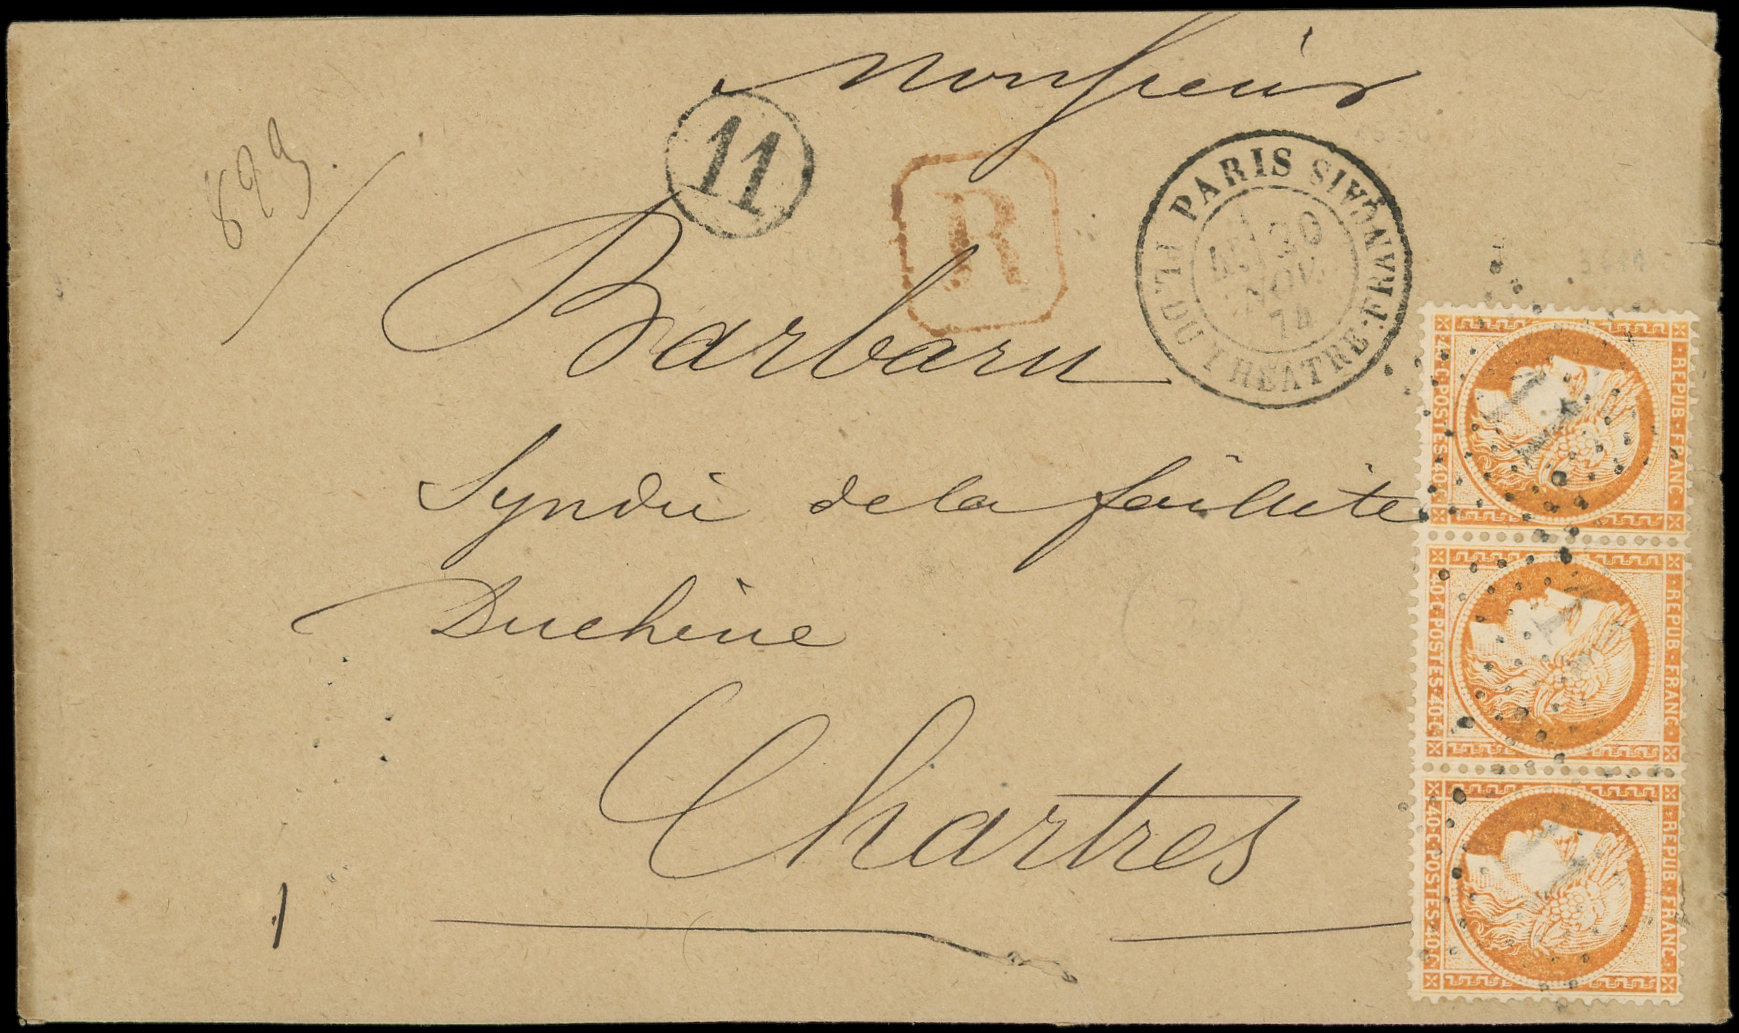 Monsieur
893.
11
R
PARIS
PL. DU THÉATRE-FRANÇAIS
20
NOV.
74
Barbaru
Syndic de la faillite
Duchêne
Chartres
REPUB·FRANC·
40·C·POSTES·40·C
REPUB·FRANC·
40·C·POSTES·40·C
REPUB·FRANC·
40·C·POSTES·40·C